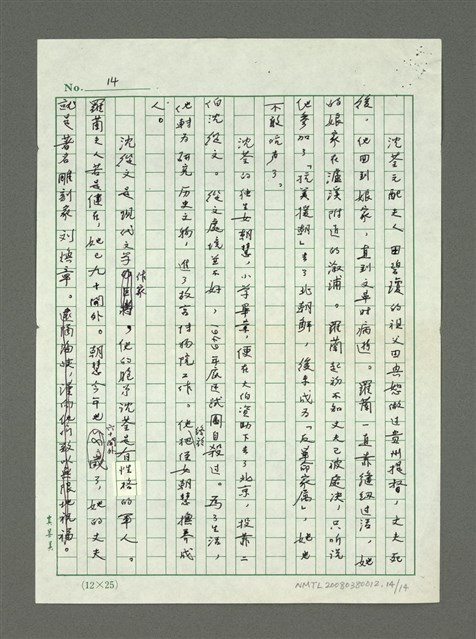 No. 14
沈荃元配夫人田碧瓊的祖父田興恕做过貴州提督，丈夫死
後，他回到娘家，直到文革时病逝。羅蘭一直靠縫紉过活，她
的娘家在瀘溪附近的溆浦。羅蘭起初不知丈夫已被处决，只听说
他參加了「抗美援朝」去了北朝鮮，後来成为「反革命家属」，她也
不敢吭声了。
沈荃的独生女朝慧，小学畢業，便在大伯資助下去了北京，投靠二
伯沈從文。從文處境並不好，1949年底还試圖自殺过。为了生活，
他转为研究历史文物，進了故宫博物院工作。他把侄女朝慧撫养成
终於
人。
沈從文是現代文学
作家
，他的胞弟沈荃是有性格的軍人。
羅蘭夫人若是健在，她已九十開外。朝慧今年也
六十開外
歲了，她的丈夫
就是著名雕刻家刘焕章。處隔海峽，谨向他们致以無限地祝福。
(12×25)
NMTL20080380012.14/14